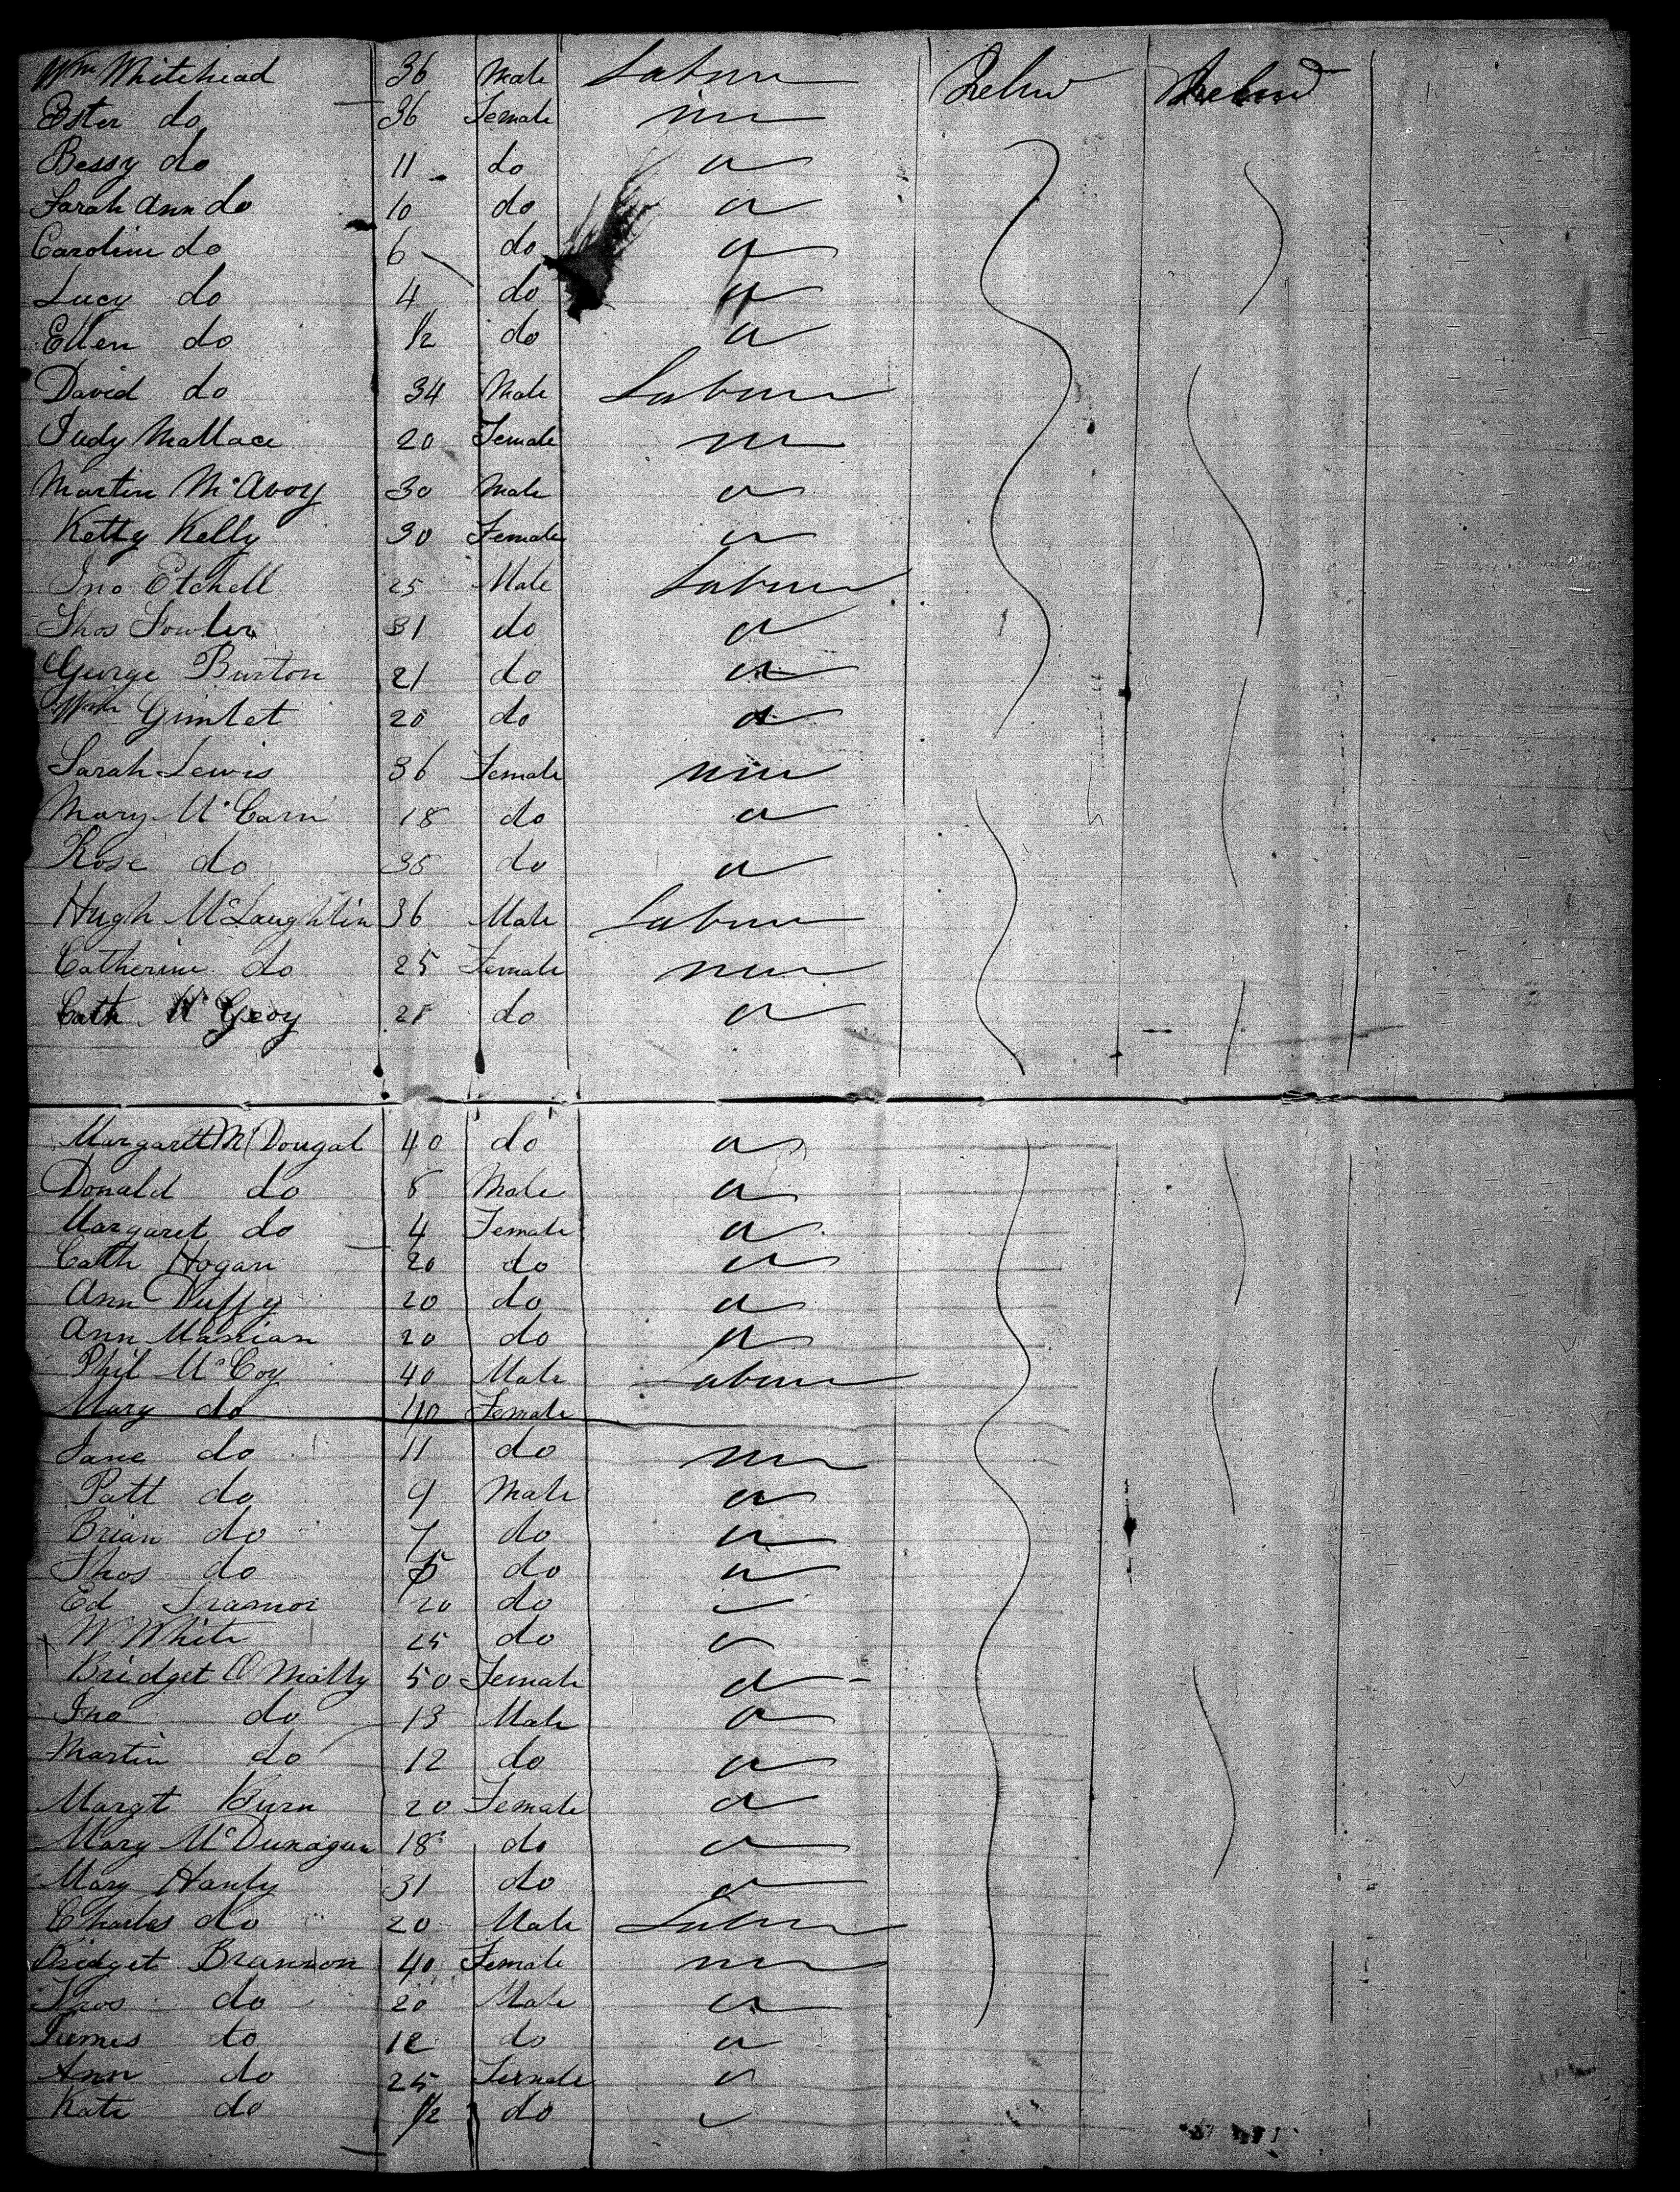 Wm Whitehead 36 Male Labour Ireland Ireland
Ester do 36 Female
Bessy do 11 do "
Sarah Ann do 10 do "
Caroline do 6 do "
Lucy do 4 do "
Ellen do 1/2 do "
David do 34 Male Labour
Judy Wallace 20 Female
Martin McAvoy 30 Male "
Ketty Kelly 30 Female "
Jno Etchell 25 Male Labour
Thos Fowler 31 do "
George Burton 21 do "
Wm Gimlet 20 do "
Sarah Lewis 36 Female
Mary McCarn 18 do "
Rose do 35 do "
Hugh McLaughlin 36 Male Labour
Catherine do 25 Female
Cath McGeoy do "
Margarett McDougal 40 do "
Donald do 8 Male "
Margaret do 4 Female "
Cath Hogan 20 do "
Ann Duffy 20 do "
Ann 20 do "
Phil McCoy 40 Male Labour
Mary do 40 Female
Jane do 11 do
Patt do 9 Male "
Brian do 7 do "
Thos do 5 do "
Ed 20 do "
W White 25 do "
Bridget O Mally 50 Female "
Jno do 13 Male "
Martin do 12 do "
Margt Burn 20 Female "
Mary McDunagun 18 do "
Mary Hanly 31 do "
Charles do 20 Male Labour
Bridget Brannon 40 Female
Thos do 20 Male "
James do 12 do "
Ann do 25 Female "
Kate do 1/2 do "